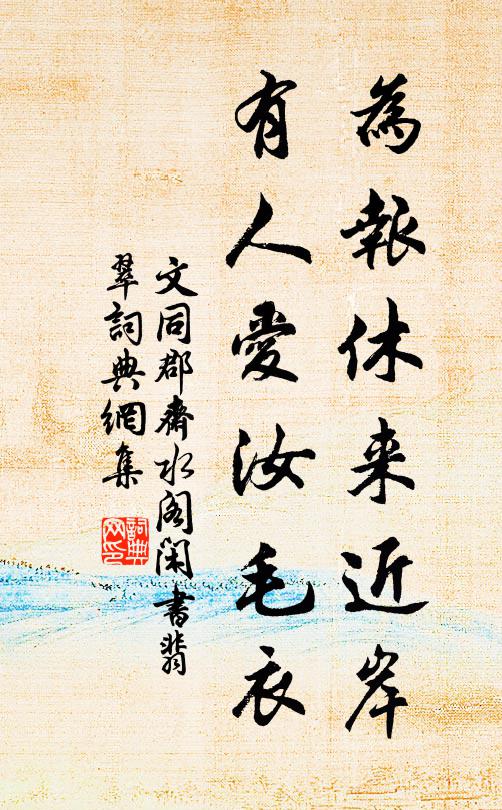 為報休来近岸
有人愛汝毛衣
文同郡齋水閣閑書翡
翠詞典網集
詞典
网印